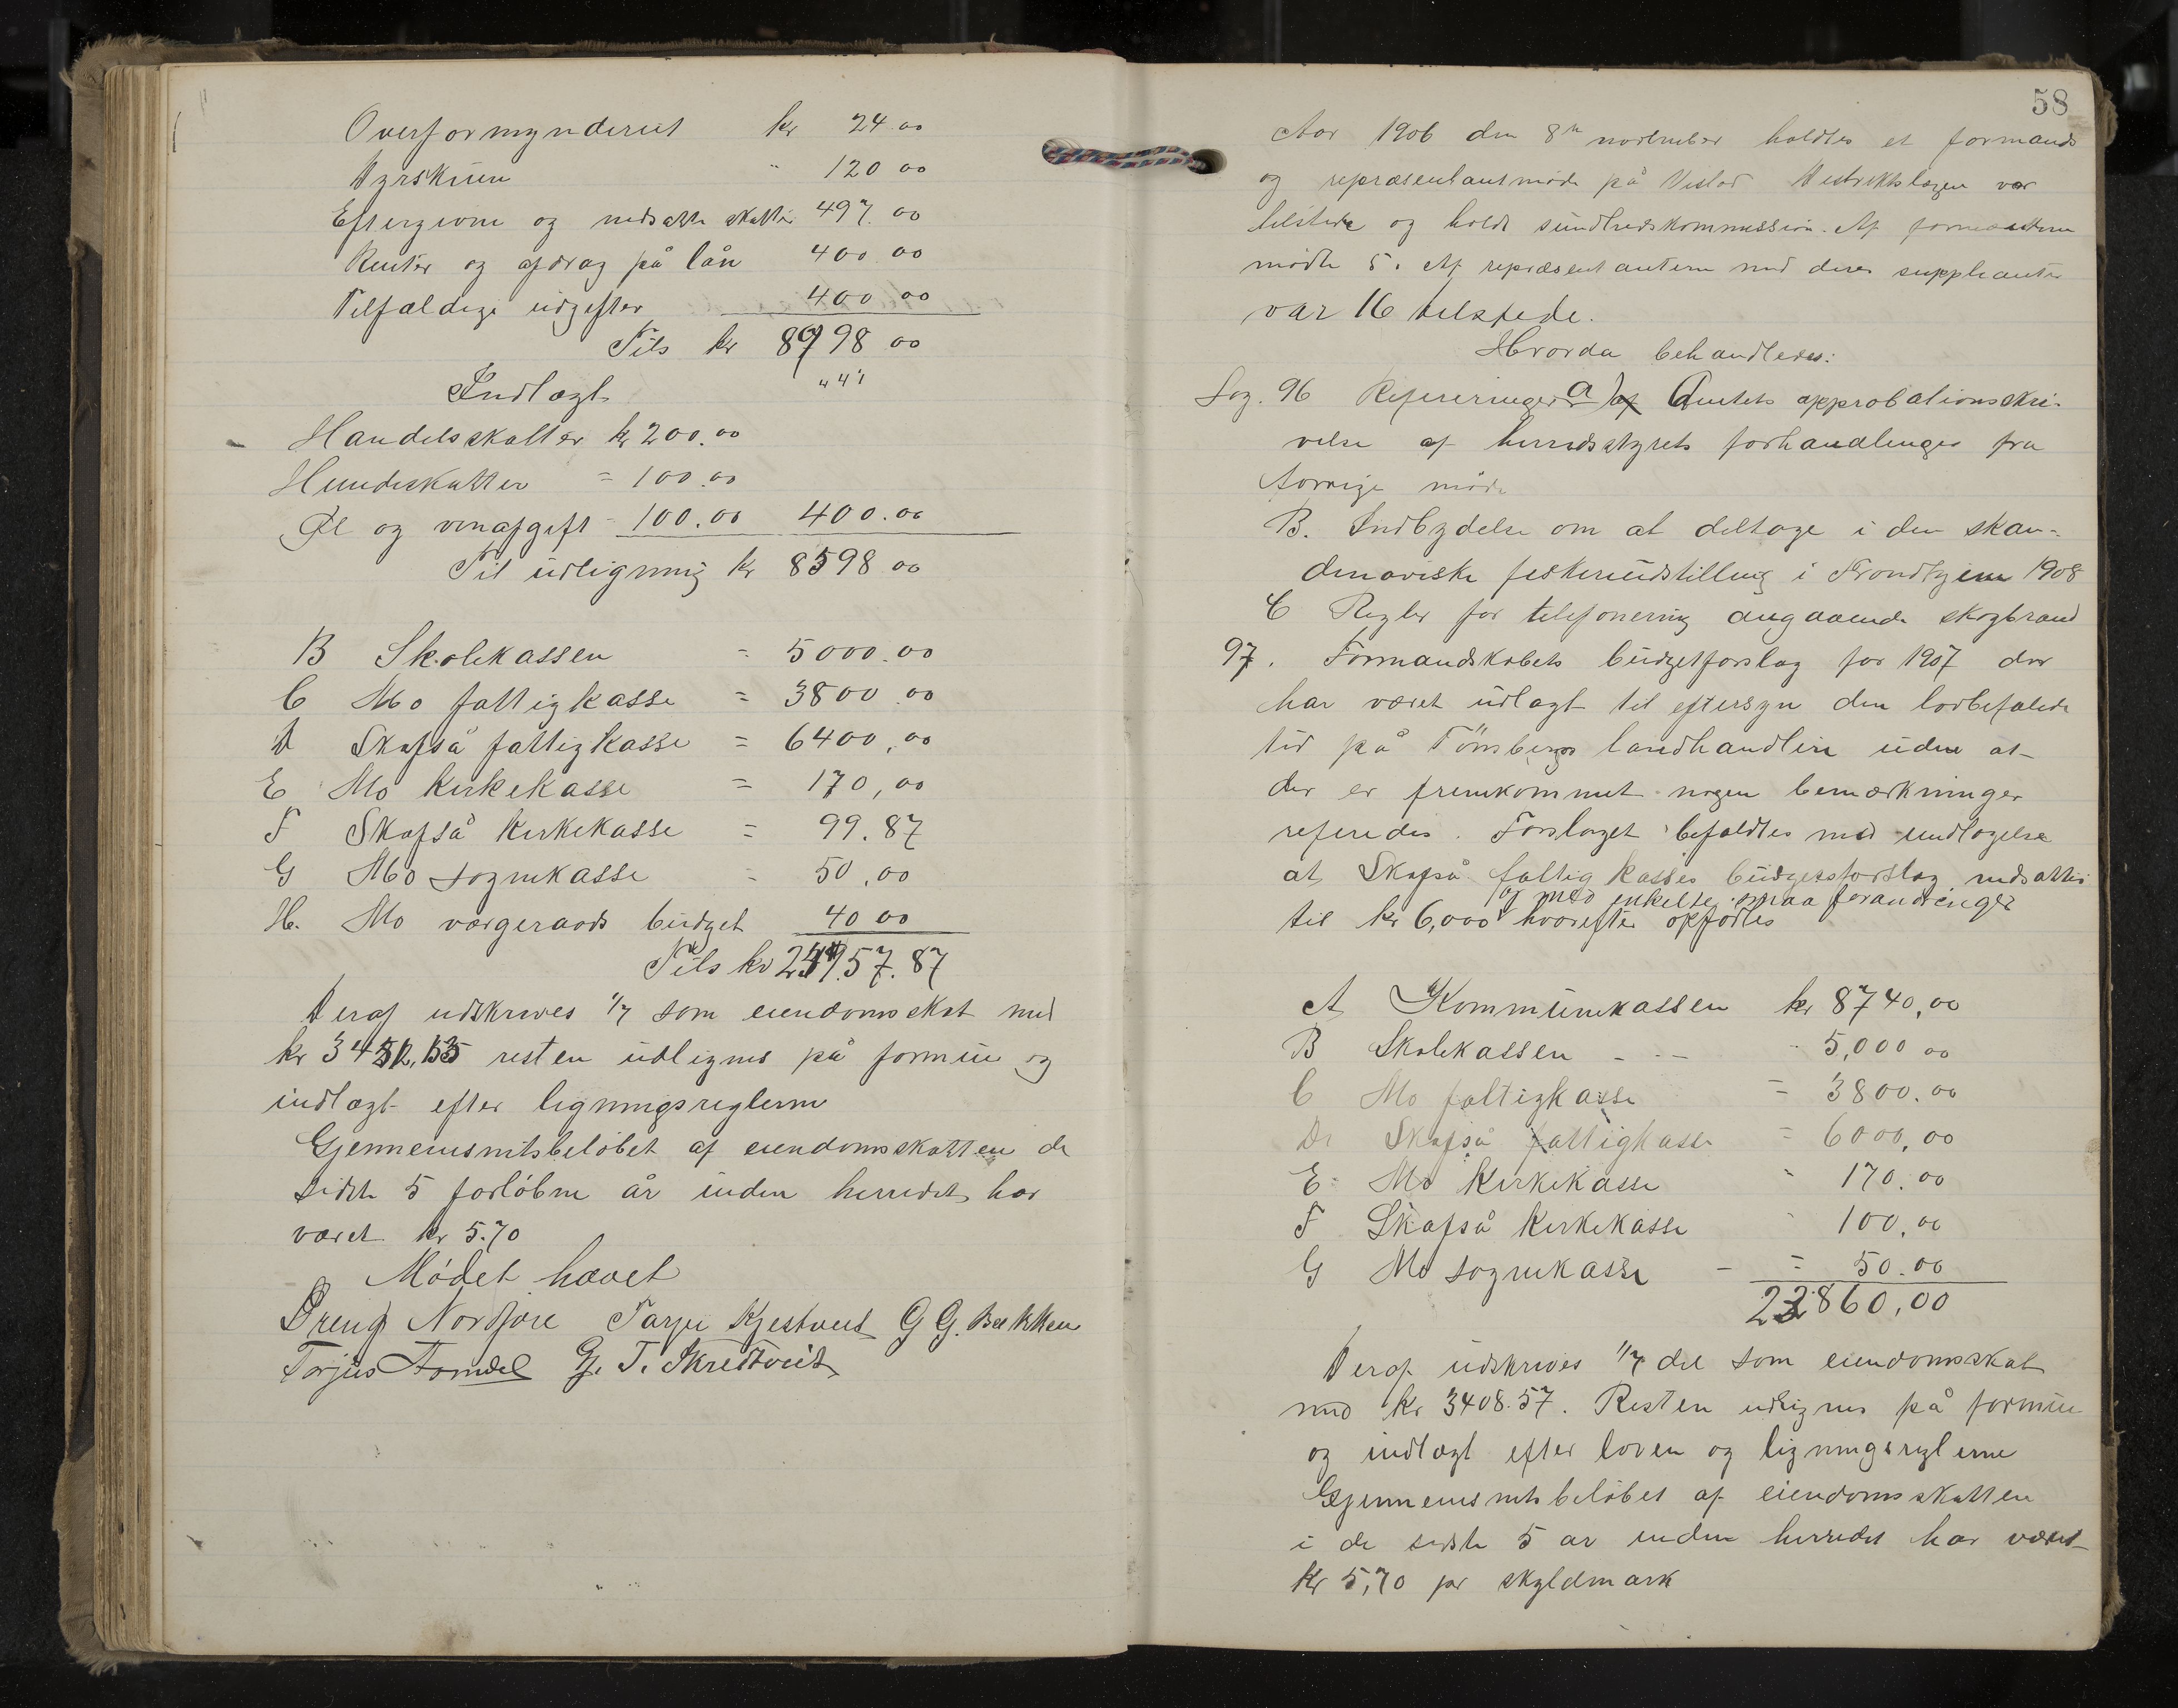 Overformynderiet kr 24.00
Dyrskuen " 120 00
Eftergivne og nedsatte skatter 497.00
Renter og afdrag på lån 400 00
Tilfældige udgifter 400 00
Tils kr 8998 00
Indtægt
Handelsskatter kr 200.00
Hundeskatter = 100.00
Øl og vinafgift - 100.00 400.00
Til udligning kr 8598 00
B Skolekassen = 5000.00
C Mo fattigkasse = 3800.00
D Skafså fattigkasse = 6400,00
E Mo Kirkekasse = 170,00
F Skafså Kirkekasse = 99.87
G Mo sognekasse = 50,00
H. Mo værgeraads budget 40 00
Tils kr 57.87
Deraf udskrives 1/7 som eiendomsskat med
kr resten udlignes på formue og
indtægt efter ligningsreglerne
Gjennemsnitsbeløbet af eiendomsskatten de
sidste 5 forløbne år inden herredet har
været kr 5.70
Mødet hævet
Dreng Tarjei G G. Bækken
Torjus G. T. Skredtveit
58
Aar 1906 den 8de november holdtes et formands
og repræsentantmøde på Distriktslægen var
tilstede og holdt sundhedskommission. Af formændene
mødte 5. Af repræsentanterne med deres suppleanter
var 16 tilstede.
Hvorda behandledes:
Sag. 96 Refereringer a) Amtets approbationsskri-
velse af herredsstyrets forhandlinger fra
forrige møde
B. Indbydelse om at deltage i den skan-
dinaviske fiskeriudstilling i Trondhjem 1908
C Regler for telefonering angaaende skogbrand
97. Formandskabets budgetforslag for 1907 der
har været udlagt til eftersyn den lovbefalede
tid på Tønsbergs landhandleri uden at
der er fremkommet nogen bemærkninger
referedes. Forslaget befaldtes med undtagelse
at Skafså fattigkasses budgetforslag nedsattes
og med enkelte smaa forandringer
til kr 6,000 hvorefter opførtes
A Kommunekassen kr 8740,00
B Skolekassen - - - " 5,000 00
C Mo fattigkasse = 3800.00
D Skafså fattigkasse = 6000,00
E Mo Kirkekasse " 170.00
F Skafså Kirkekasse " 100,00
G Mo sognekasse - = 50.00
23860,00
Deraf udskrives 1/7 del som eiendomsskat
med kr 3408.57. Resten udlignes på formue
og indtægt efter loven og ligningsreglerne
Gjennemsnitsbeløbet af eiendomsskatten
i de sidste 5 år inden herredet har været
kr 5,70 pr skyldmark